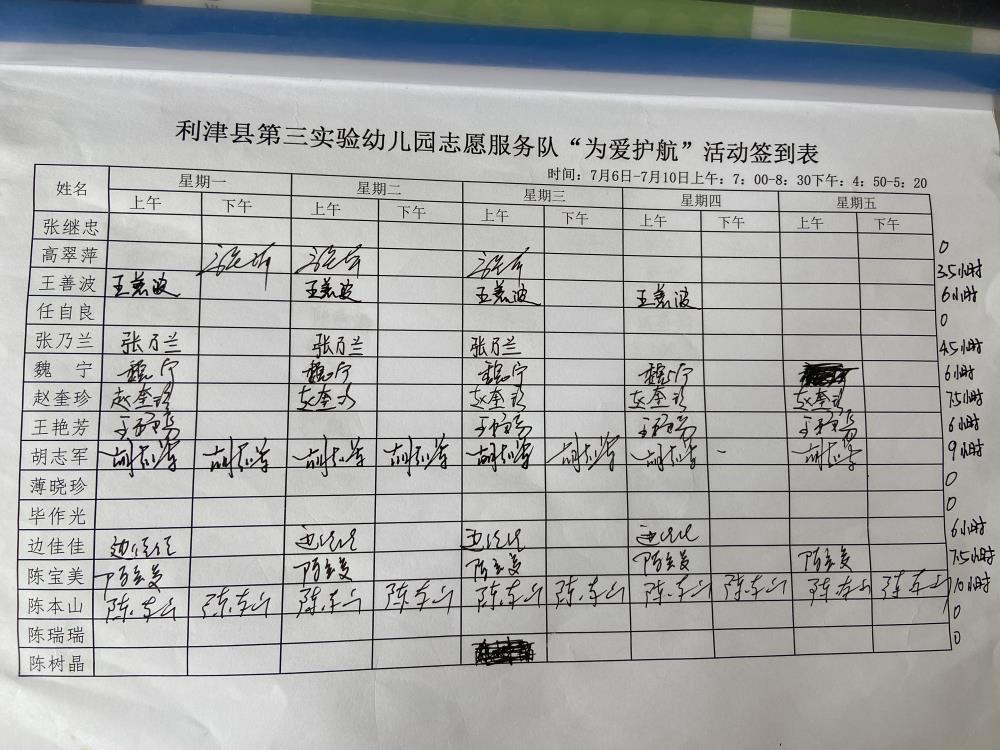 利津县第三实验幼儿园志愿服务队“为爱护航”活动签到表
时间：7月6日-7月10日上午：7：00-8：30下午：4：50-5：20
姓名 星期一 星期二 星期三 星期四 星期五
上午 下午 上午 下午 上午 下午 上午 下午 上午 下午
张继忠 0
高翠萍 3.5小时
王善波 王善波 王善波 王善波 王善波 6小时
任自良 0
张乃兰 张乃兰 张乃兰 张乃兰 4.5小时
魏 宁 魏宁 魏宁 魏宁 魏宁 6小时
赵奎珍 赵奎珍 赵奎珍 赵奎珍 赵奎珍 赵奎珍 7.5小时
王艳芳 王艳芳 王艳芳 王艳芳 王艳芳 6小时
胡志军 胡志军 胡志军 胡志军 胡志军 胡志军 胡志军 胡志军 - 胡志军 9小时
薄晓珍 0
毕作光 0
边佳佳 边佳佳 边佳佳 边佳佳 边佳佳 6小时
陈宝美 陈宝美 陈宝美 陈宝美 陈宝美 陈宝美 7.5小时
陈本山 陈本山 陈本山 陈本山 陈本山 陈本山 陈本山 陈本山 陈本山 陈本山 陈本山 10小时
陈瑞瑞 0
陈树晶 0